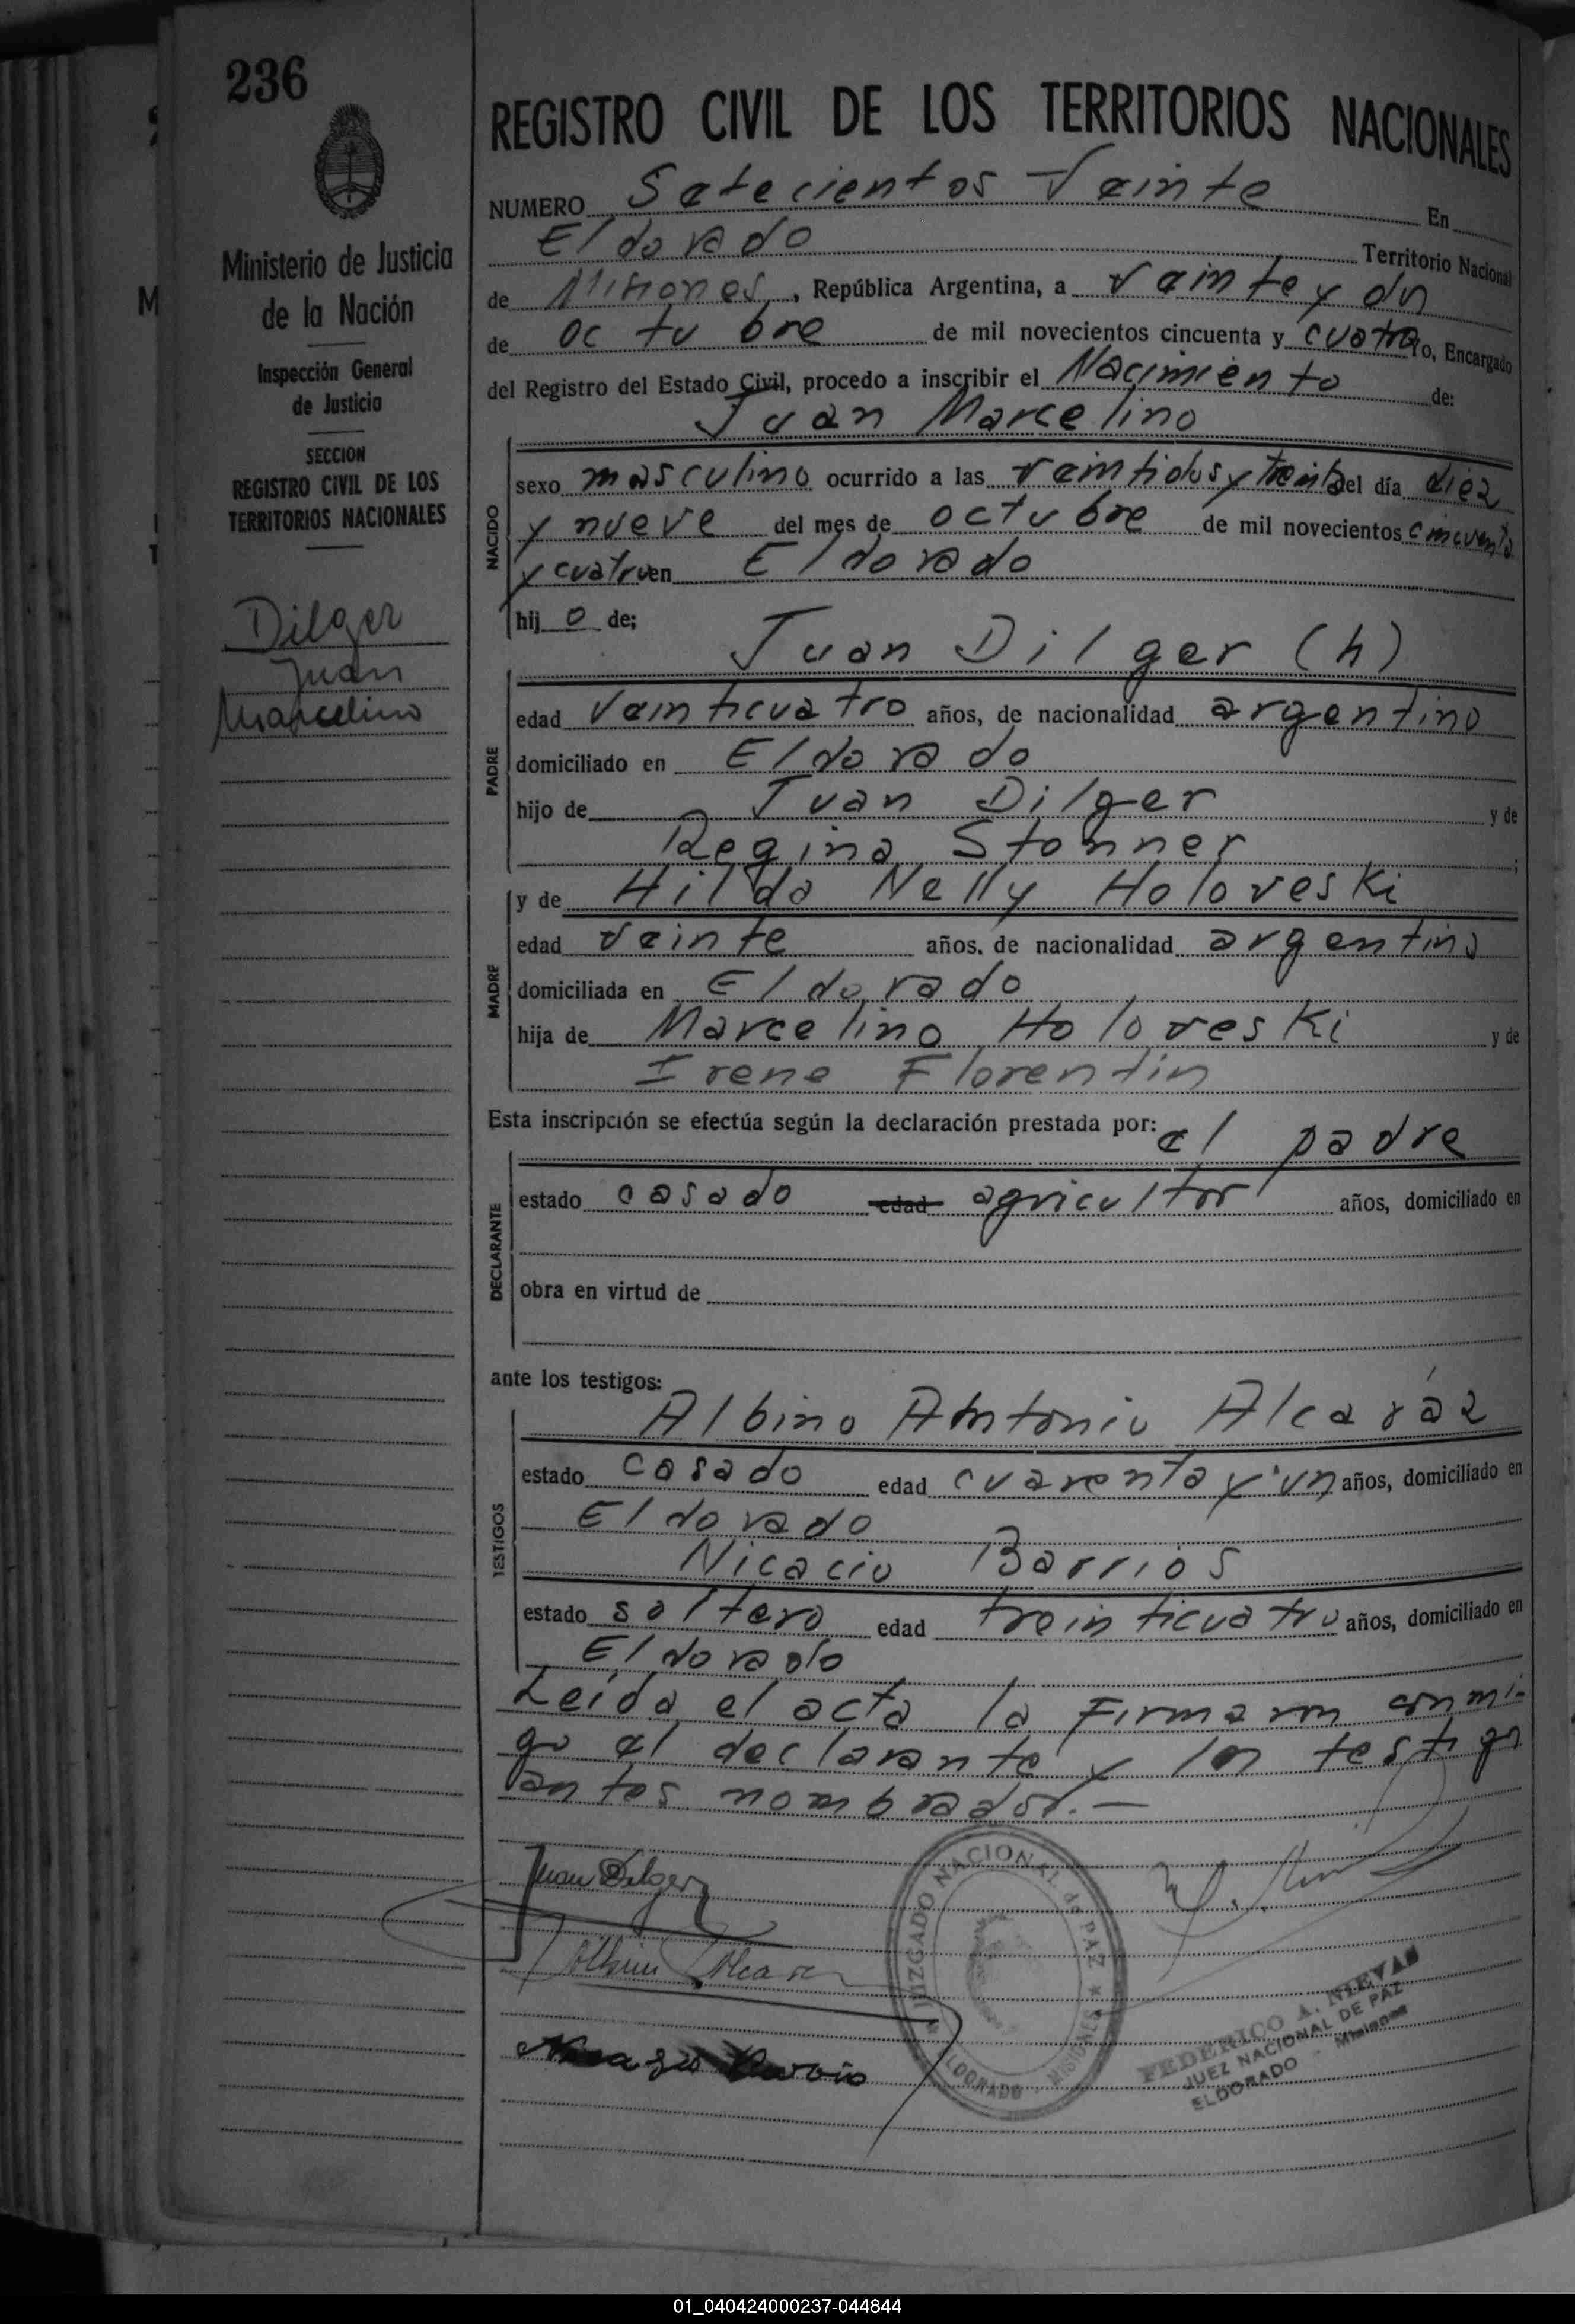 236
Ministerio de Justicia
de la Nación
Inspección General
de Justicia
SECCION
REGISTRO CIVIL DE LOS
TERRITORIOS NACIONALES
Dilger
Juan
Marcelino
REGISTRO CIVIL DE LOS TERRITORIOS NACIONALES
NUMERO Setecientos Veinte En
Eldorado Territorio Nacional
de Misiones, República Argentina, a veinte y dos
de octubre de mil novecientos cincuenta y cuatro Yo, Encargado
del Registro del Estado Civil, procedo a inscribir el Nacimiento de:
Juan Marcelino
NACIDO
sexo masculino ocurrido a las veintidos y treinta del día diez
y nueve del mes de octubre de mil novecientos cincuenta
y cuatro en Eldorado
hij o de;
Juan Dilger (h)
PADRE
edad veinticuatro años, de nacionalidad argentino
domiciliado en Eldorado
hijo de Juan Dilger y de
Regina Stonner ;
MADRE
y de Hilda Nelly Holoveski
edad veinte años, de nacionalidad argentina
domiciliada en Eldorado
hija de Marcelino Holoveski y de
Irene Florentin
Esta inscripción se efectúa según la declaración prestada por: el padre
DECLARANTE
estado casado edad agricultor años, domiciliado en
obra en virtud de
ante los testigos:
TESTIGOS
Albino Antonio Alcaráz
estado casado edad cuarenta y un años, domiciliado en
Eldorado
Nicacio Barrios
estado soltero edad treinticuatro años, domiciliado en
Eldorado
Leída el acta la firmaron conmi-
go el declarante y los testigos
antes nombrados.—
Juan Dilger
Albino Alcaraz
JUZGADO NACIONAL de PAZ ★ ELDORADO - MISIONES ★
FEDERICO A. NIEVAS
JUEZ NACIONAL DE PAZ
ELDORADO - Misiones
01_040424000237-044844